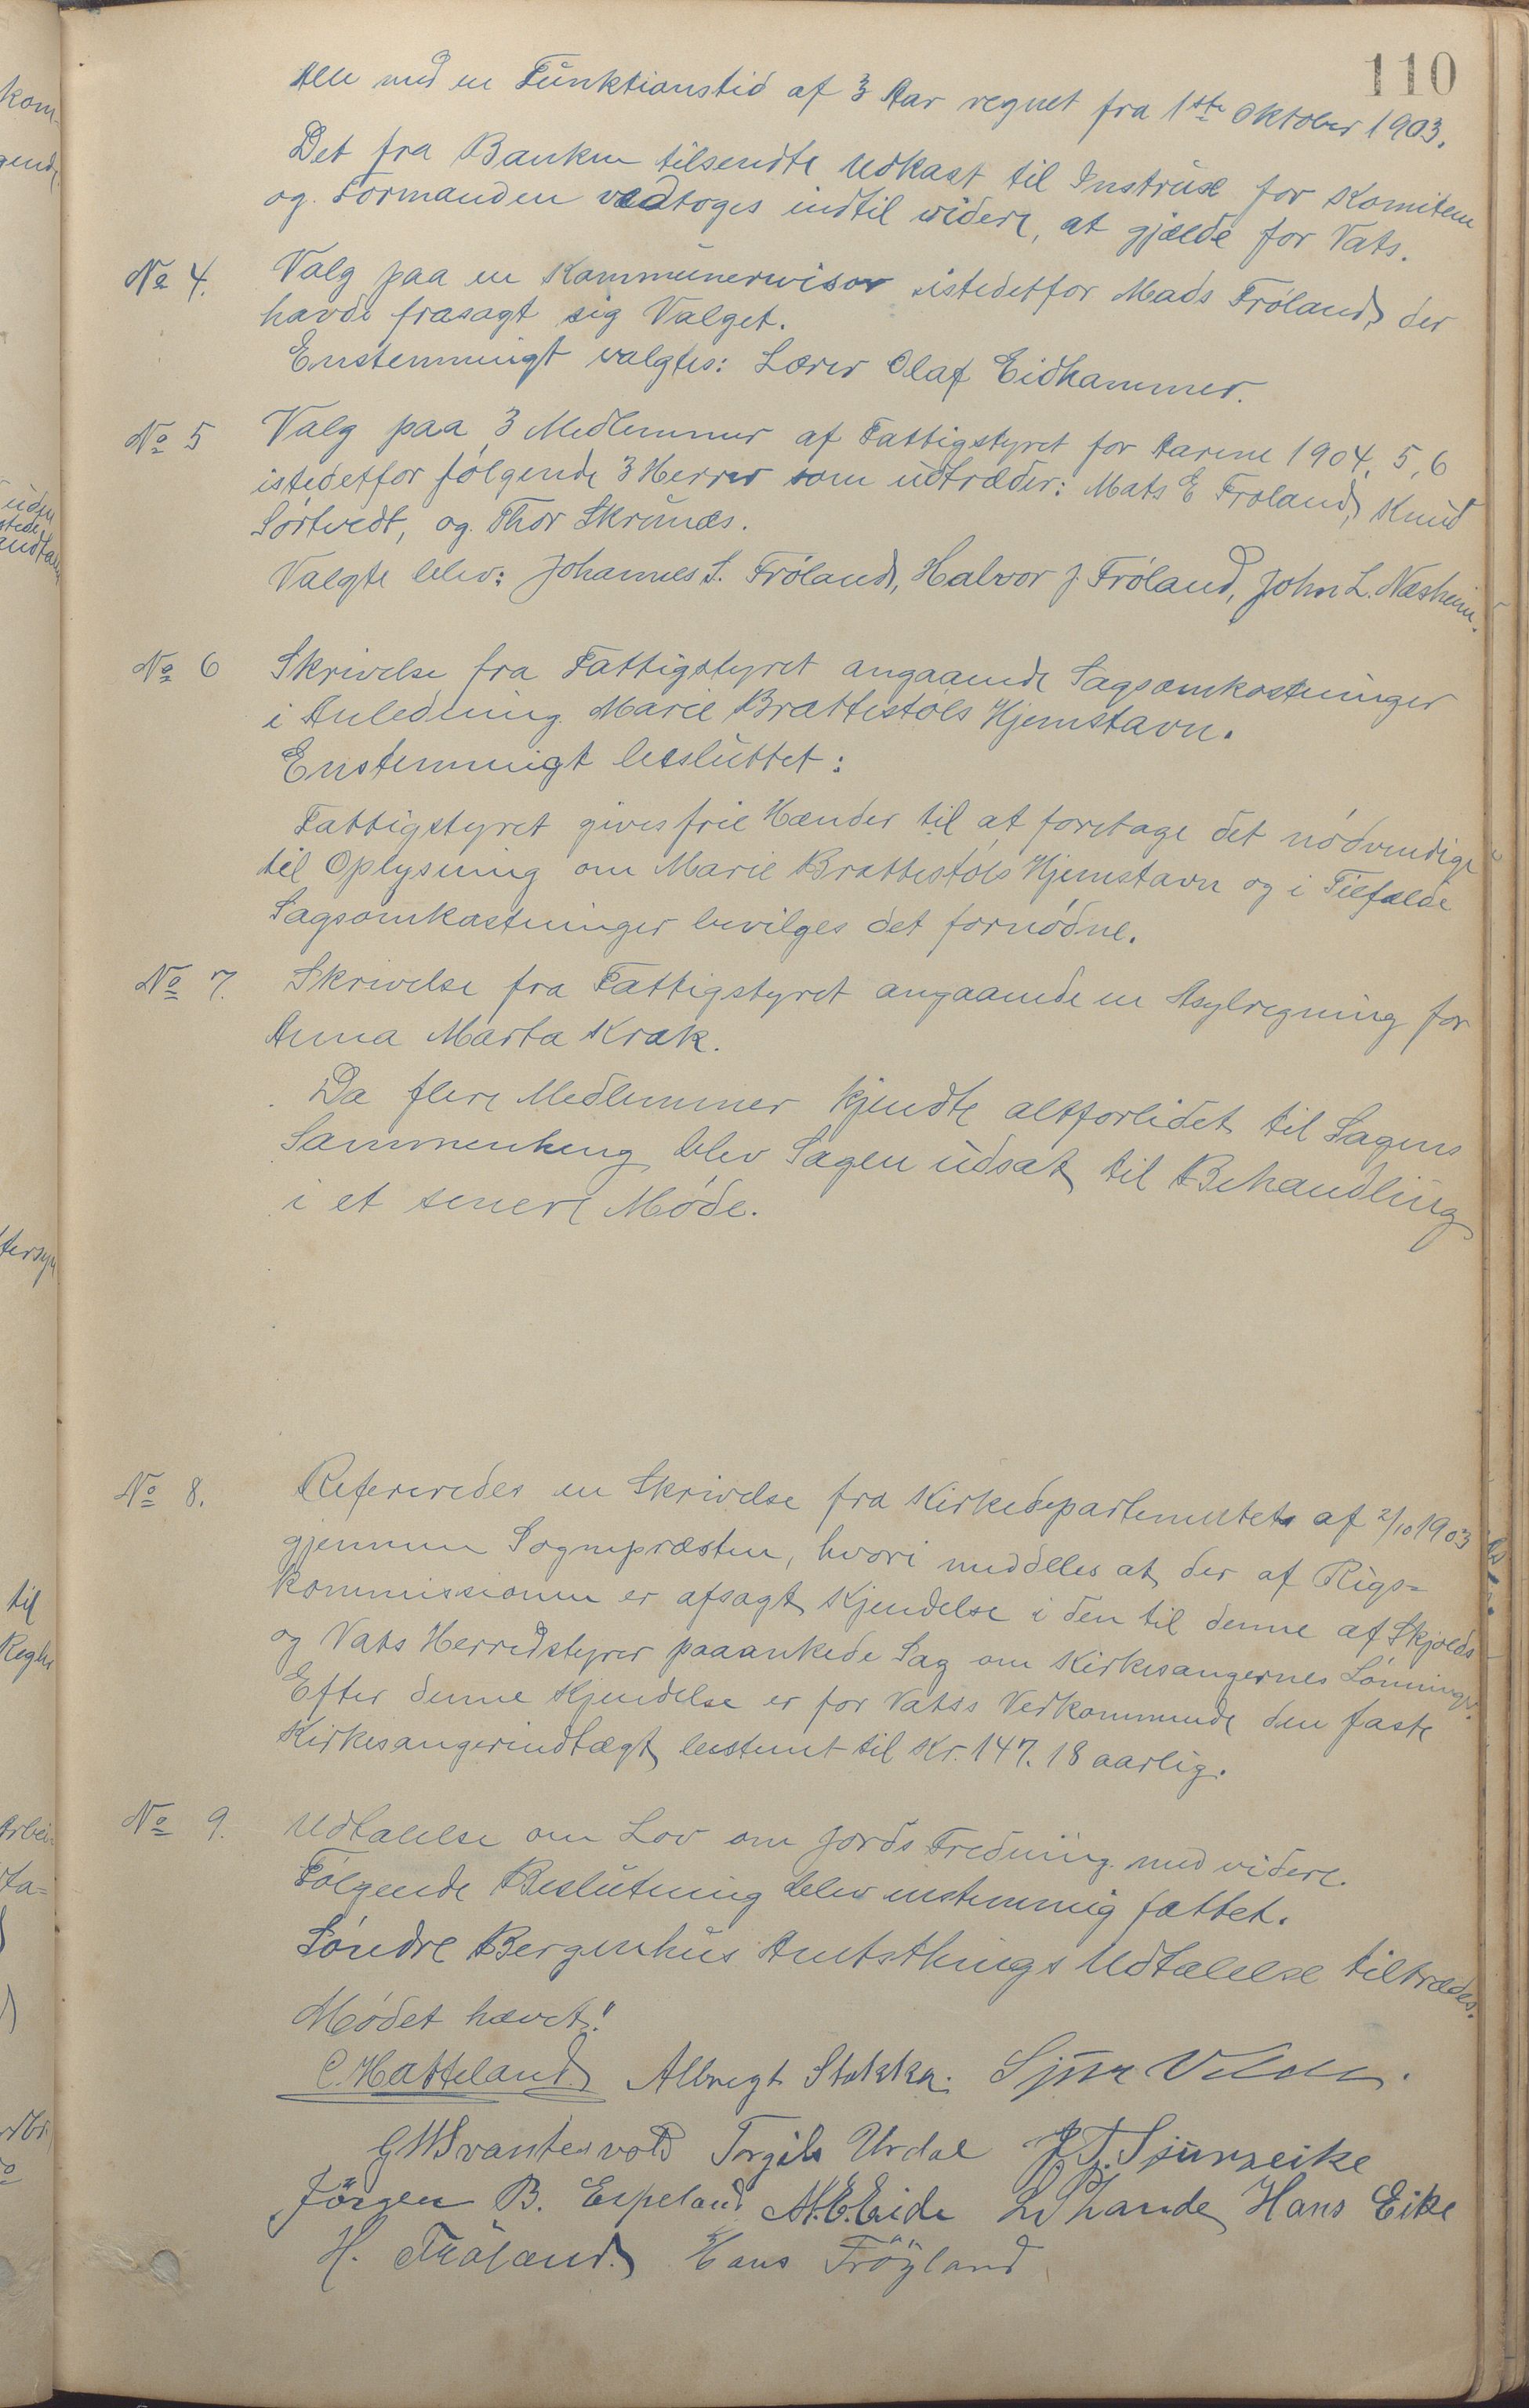 110
Alle med en Funktionstid af 3 Aar regnet fra 1ste Oktober 1903.
Det fra Banken tilsendte Udkast til Instruse for Komiteen
og Formanden vedtoges indtil videre, at gjælde for Vats.
No 4. Valg paa en Kommunerevisor istedetfor Mads Fröland, der
havde frasagt sig Valget.
Enstemmigt valgtes: Lærer Olaf Eidhammer.
No 5 Valg paa 3 Medlemmer af Fattigstyret for Aarene 1904, 5, 6
istedetfor følgende 3 Herrer som udtræder: Mats E Froland, Knud
Sörtvedt, og Thor Skrunes.
Valgte blev: Johannes S. Fröland, Halvor J. Fröland, John L. Næsheim.
No 6 Skrivelse fra Fattigstyret angaaende Sagsomkostninger
i Anledning Marie Brattestöls Hjemstavn.
Enstemmigt besluttet:
Fattigstyret gives frie Hænder til at foretage det nödvendige
til Oplysning om Marie Brattestöls Hjemstavn og i Tilfælde
Sagsomkostninger bevilges det fornödne.
No 7. Skrivelse fra Fattigstyret angaaende en Asylregning for
Anna Marta Krak.
Da flere Medlemmer kjendte altforlidet til Sagens
Sammenheng blev Sagen udsat til Behandling
i et senere Möde.
No 8. Refereredes en Skrivelse fra Kirkedepartementet af 2/10 1903
gjennem Sognepræsten, hvori meddelles at der af Rigs=
kommissionen er afsagt Kjendelse i den til denne af Skjolds
og Vats Herredstyrer paaankede Sag om Kirkesangernes Lönninger.
Efter denne Kjendelse er for Vatss Vedkommende den faste
Kirkesangerindtægt bestemt til Kr. 147. 18 aarlig.
No 9. Udtalelse om Lov om Jords Fredning med videre.
Fölgende Beslutning blev enstemmig fattet.
Söndre Bergenhus Amtsthings Udtalelse tiltrædes.
Mödet hævet!
C. Hatteland Albregt Stokka. Sjur
G W Svantesvold Torgils Urdal J. T. Sjurseike
Jörgen B. Espeland M. E. Eide Hans Eike
H. Fröland. Hans Fröyland